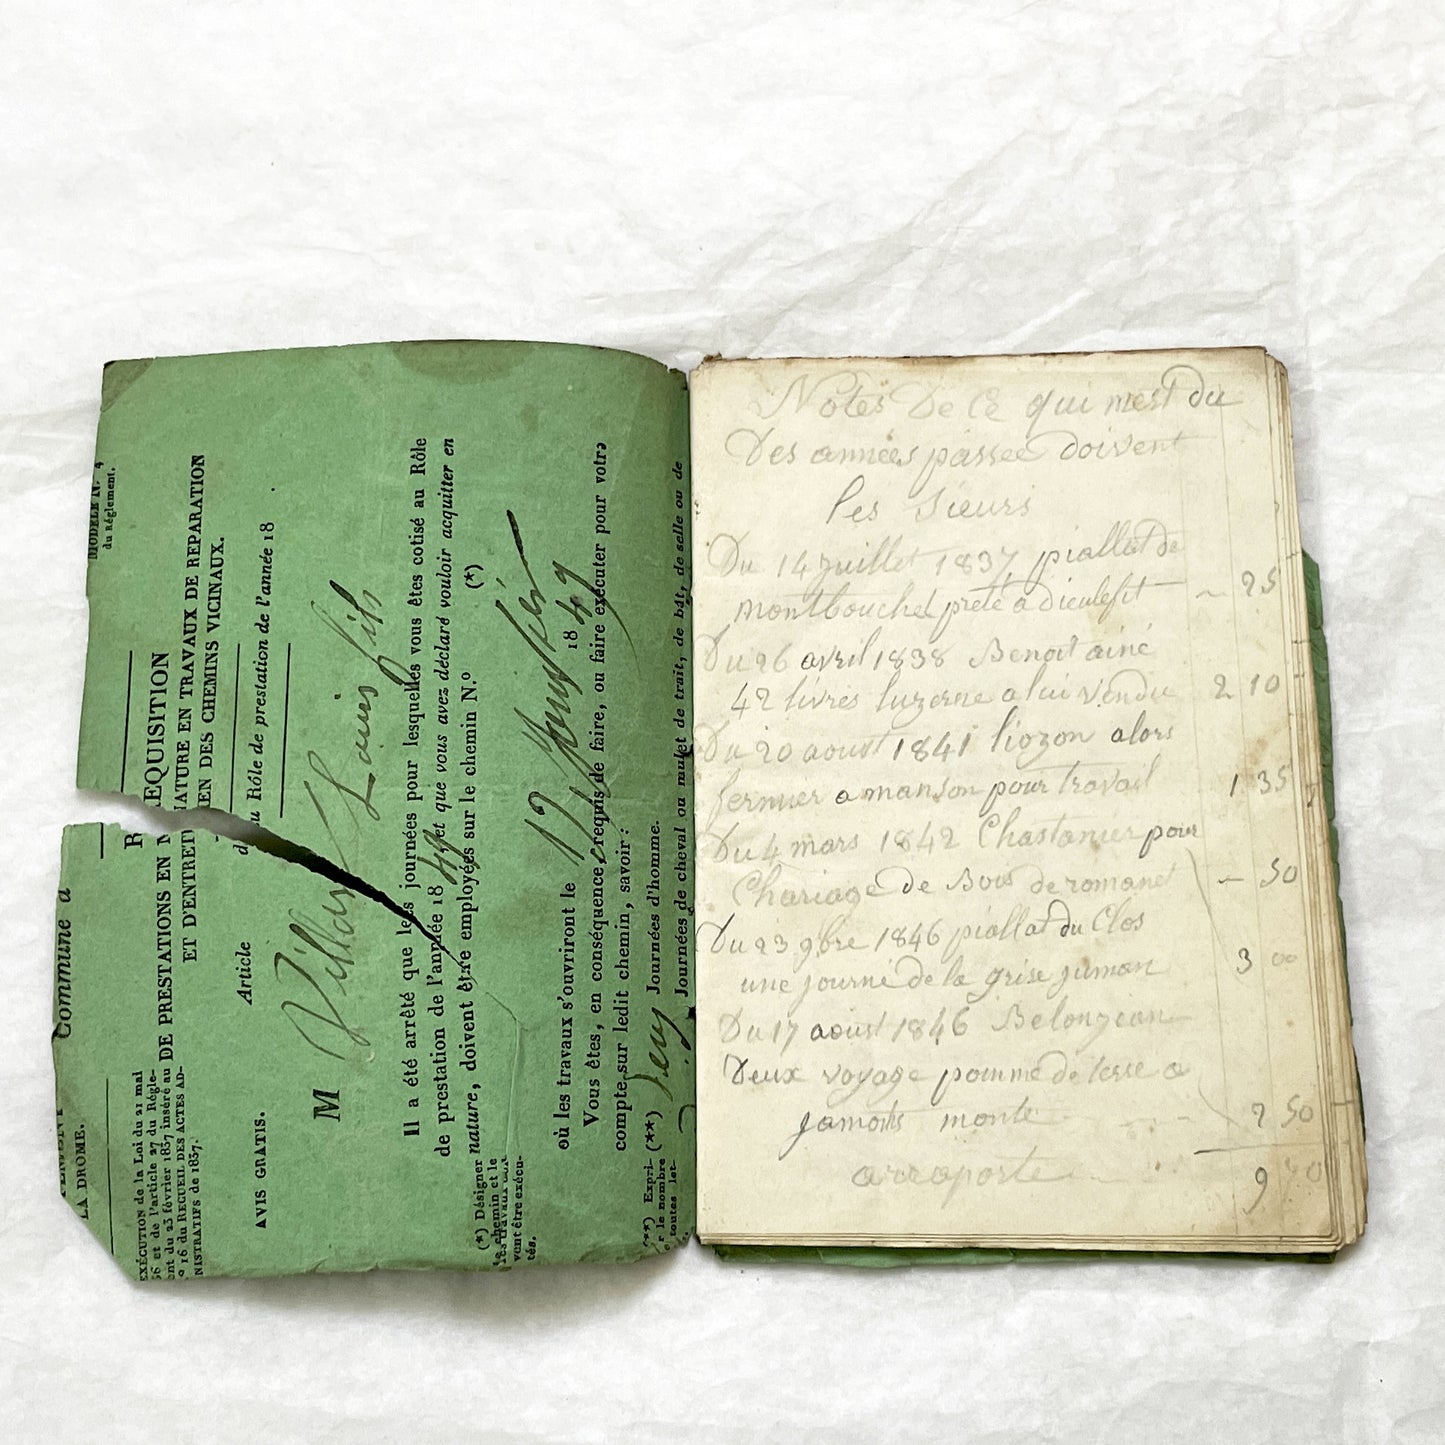 MODÈLE N.º 4
du Réglement.
Commune à
LA DROME.
EXÉCUTION de la Loi du 21 mai
36 et de l'article 27 du Régle-
ent du 23 février 1837 inséré au
º 16 du RECUEIL DES ACTES AD-
NISTRATIFS de 1837.
RÉQUISITION
DE PRESTATIONS EN NATURE EN TRAVAUX DE REPARATION
ET D'ENTRETIEN DES CHEMINS VICINAUX.
Article du Rôle de prestation de l'année 18
AVIS GRATIS.
M Villar Louis fils
Il a été arrêté que les journées pour lesquelles vous êtes cotisé au Rôle
de prestation de l'année 1849 et que vous avez déclaré vouloir acquitter en
nature, doivent être employées sur le chemin N.º (*)
(*) Désigner
le chemin et le
les travaux doi-
vent être exécu-
tés.
où les travaux s'ouvriront le 12 1849
Vous êtes, en conséquence, requis de faire, ou faire exécuter pour votre
compte sur ledit chemin, savoir :
(**) Journées d'homme.
Journées de cheval ou mulet de trait, de bât, de selle ou de
(**) Expri-
r le nombre
toutes let-
Notes De Ce qui mest du
Des années passee doivent
les Sieurs
Du 14 juillet 1837 piallat de
montbouchel prete a dieulefit ~ 25
Du 26 avril 1838 Benoit ainé
42 livres luzerne a lui vendu 2 10
Du 20 aoust 1841 liozon alors
fermier a manson pour travail 1 35
Du 4 mars 1842 Chastanier pour
Chariage de Bois de romanet ~ 50
Du 23 9bre 1846 piallat du Clos
une journé de la grise juman 3 00
Du 17 aoust 1846 Belonjean
Deux voyage pomme de terre a
monte 2 50
arraporte 9 70